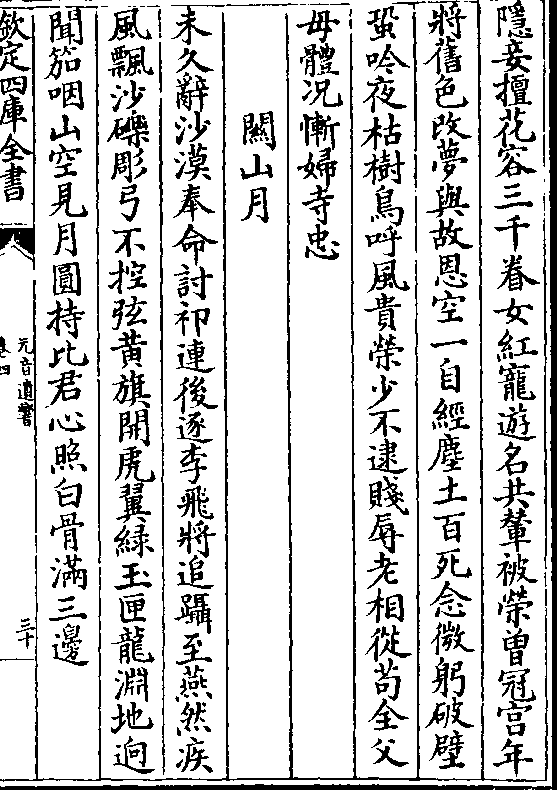 隱妾擅花容三千眷女紅寵遊名共輦被榮曾冠宫年
將舊色改夢與故恩空一自經塵土百死念微躬破壁
蛩吟夜枯樹鳥呼風貴榮少不逮賤辱老相從苟全父
母體况慚婦寺忠
關山月
未久辭沙漠奉命討祁連後逐李飛將追躡至燕然疾
風飄沙礫彫弓不控弦黄旗開虎翼緑玉匣龍淵地逈
聞笳咽山空見月圓持比君心照白骨滿三邊
欽定四庫全書
元音遺響
卷四
三十